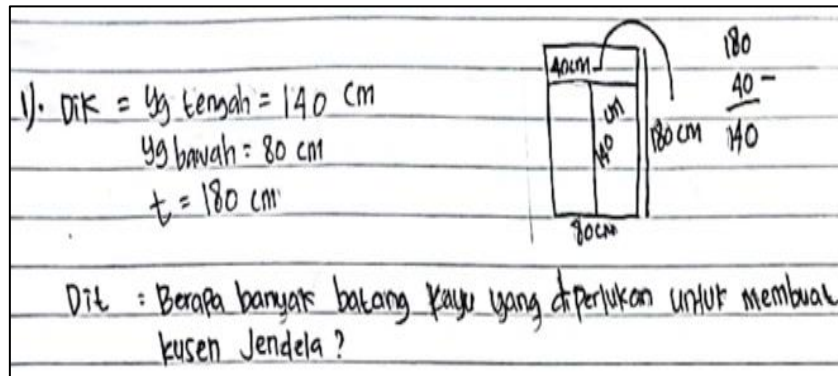 1). Dik = Yg tengah = 140 cm
yg bawah = 80 cm
t = 180 cm
40cm
140 cm
180 cm
80cm
180
40 -
140
Dit : Berapa banyak batang kayu yang diperlukan untuk membuat
kusen Jendela?